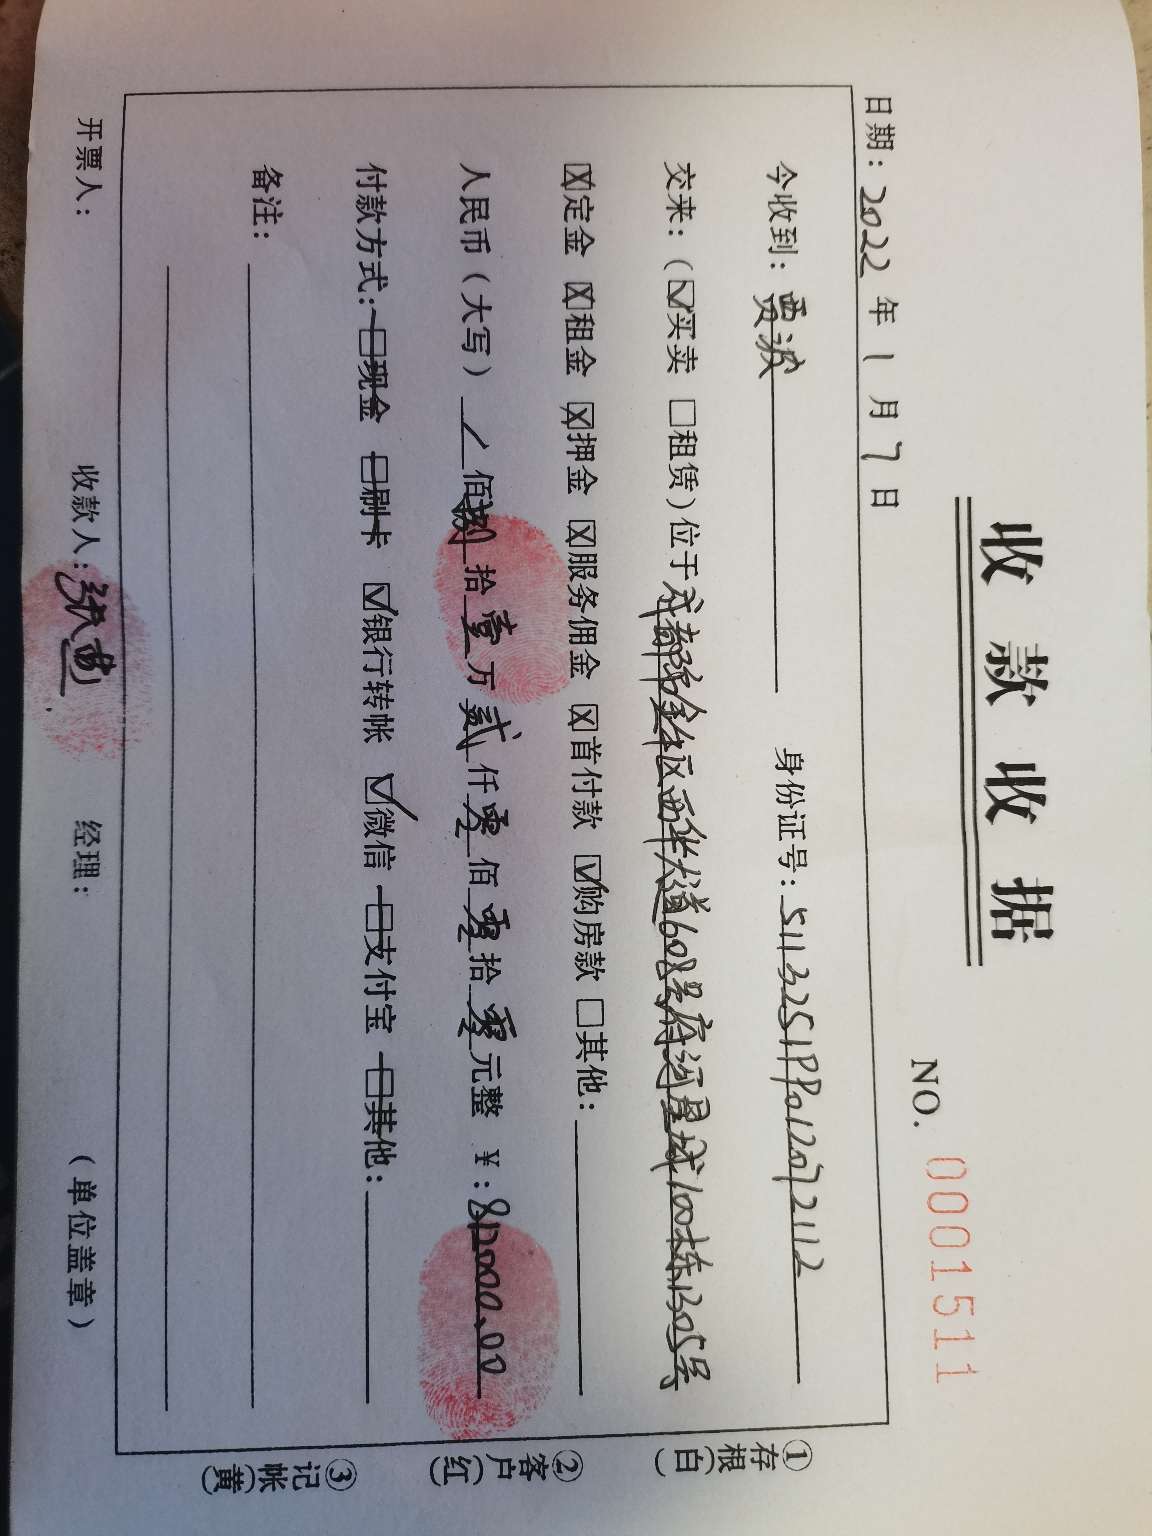 收款收据
NO. 0001511
日期：2022年1月7日
今收到：贾波 身份证号：511325199012072112
交来：（☑买卖 □租赁）位于成都市金牛区西华大道608号府河星城100栋1305号
☒定金 ☒租金 ☒押金 ☒服务佣金 ☒首付款 ☑购房款 □其他：
人民币（大写）/佰捌拾壹万贰仟零佰零拾零元整 ¥：812000.00
付款方式：□现金 □刷卡 ☑银行转帐 ☑微信 □支付宝 □其他：
备注：
开票人： 收款人：张 经理： （单位盖章）
①存根（白）
②客户（红）
③记帐（黄）